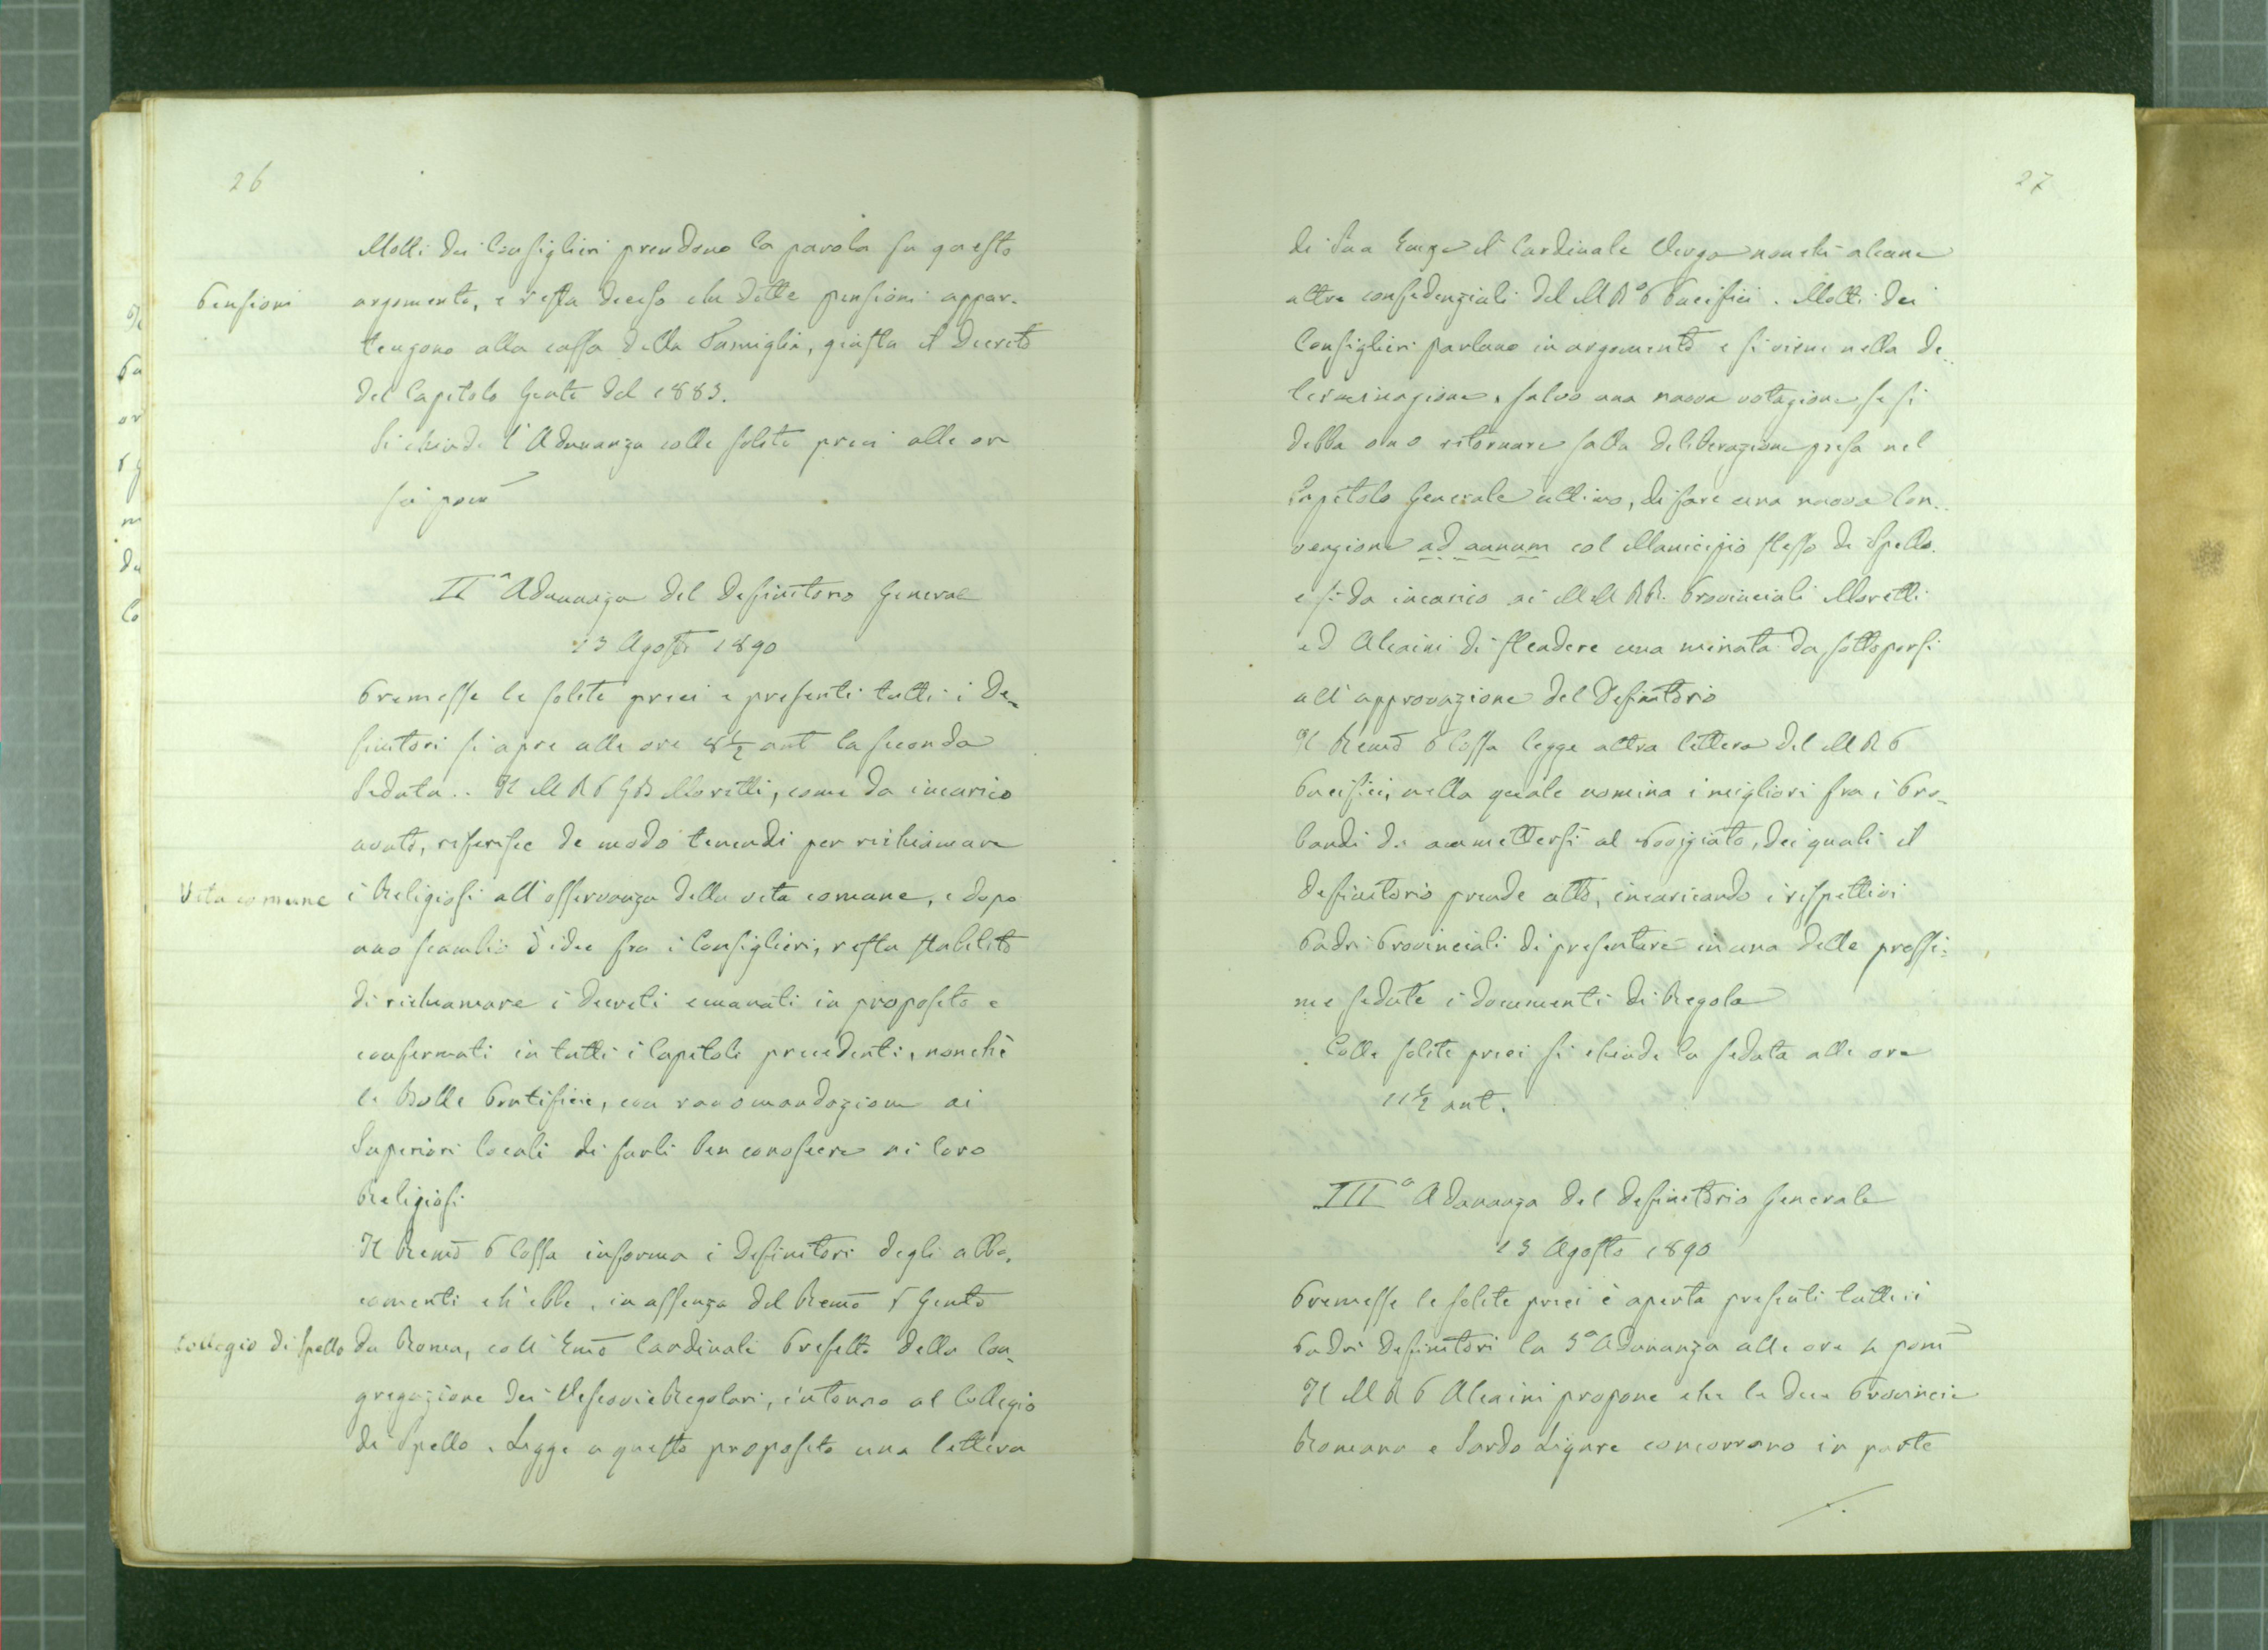 26
Molti dei Consiglieri prendono la parola su questo
Pensioni
argomento, e resta deciso che dette pensioni appar-
tengono alla cassa della Famiglia, giusta il Decreto
del Capitolo Genle del 1883.
Si chiude l'Adunanza colle solite preci alle ore
pom
IIa Adunanza del Definitorio General
13 Agosto 1890
Premesse le solite preci e presenti tutti i De-
finitori si apre alle ore 8 1/2 ant la seconda
Seduta.. Il M R P GB Moretti, come da incarico
avuto, riferisce de modo tenendi per richiamare
Vita comune
i Religiosi all'osservanza della vita comune, e dopo
uno scambio d'idee fra i Consiglieri, resta stabilito
di richiamare i decreti emanati in proposito e
confermati in tutti i Capitoli precedenti, nonchè
le Bolle Pontificie, con racomandazione ai
Superiori locali di farli ben conoscere ai loro
Religiosi
Il Remo P Cossa informa i Definitori degli abbo-
camenti ch'ebbe, in assenza del Remo P Genle
Collegio di Spello
da Roma, coll'Emo Cardinale Prefetto della Con-
gregazione dei Vescovi e Regolari, intorno al Collegio
di Spello. Legge a questo proposito una lettera
27
di Sua Emza il Cardinale Verga nonchè alcune
altre confidenziali del M Ro P Pacifici. Molti dei
Consiglieri parlano in argomento e si viene nella de-
terminazione, salvo una nuova votazione se si
debba o no ritornare sulla deliberazione presa nel
Capitolo Generale ultimo, di fare una nuova Con-
venzione ad annum col Municipio stesso di Spello.
e si da incarico ai MM RR. Provinciali Moretti
ed Alcaini di stendere una minuta da sottoporsi
all'approvazione del Definitorio
Il Remo P Cossa legge altra lettera del M R P
Pacifici, nella quale nomina i migliori fra i Pro-
bandi da ammettersi al Noviziato, dei quali il
Definitorio prende atto, incaricando i rispettivi
Padri Provinciali di presentare in una delle prossi-
me sedute i documenti di Regola
Colle solite preci si chiude la seduta alle ore
11 1/2 ant.
IIIa Adunanza del Definitorio Generale
13 Agosto 1890
Premesse le solite preci è aperta presenti tutti i
Padri Definitori la 3a Adunanza alle ore 4 pom
Il M R P Alcaini propone che le due Provincie
Romana e Sardo Ligure concorrano in parte